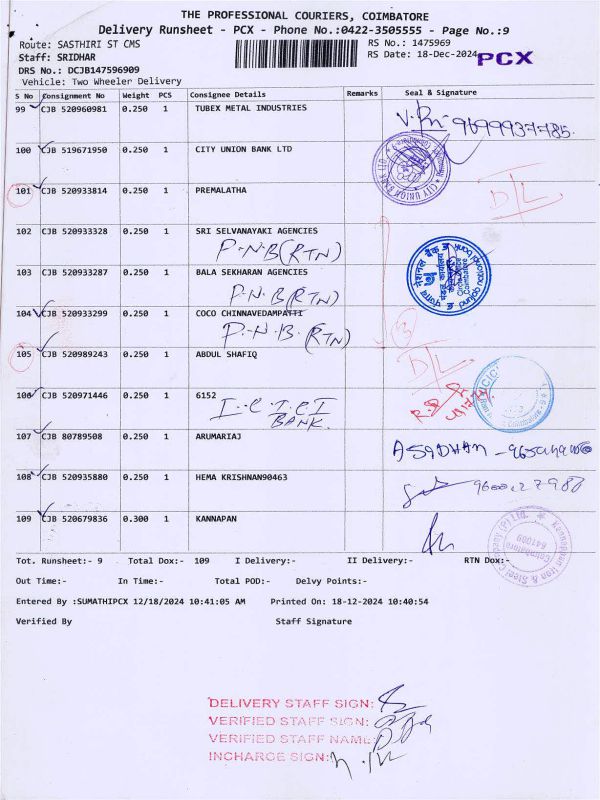 THE PROFESSIONAL COURIERS, COIMBATORE
Delivery Runsheet - PCX - Phone No.:0422-3505555 - Page No.:9
Route: SASTHIRI ST CMS RS No.: 1475969
Staff: SRIDHAR RS Date: 18-Dec-2024 PCX
DRS No.: DCJB147596909
Vehicle: Two Wheeler Delivery
S No Consignment No Weight PCS Consignee Details Remarks Seal & Signature
99 CJB 520960981 0.250 1 TUBEX METAL INDUSTRIES
100 CJB 519671950 0.250 1 CITY UNION BANK LTD
CITY UNION BANK LTD
101 CJB 520933814 0.250 1 PREMALATHA D/L
102 CJB 520933328 0.250 1 SRI SELVANAYAKI AGENCIES
P.N.B (RTN)
103 CJB 520933287 0.250 1 BALA SEKHARAN AGENCIES
P.N.B (RTN)
पंजाब नैशनल बैंक
मंडल कार्यालय
Circle Office
Coimbatore
punjab national bank
104 CJB 520933299 0.250 1 COCO CHINNAVEDAMPATTI
P.N.B. (RTN) 3
105 CJB 520989243 0.250 1 ABDUL SHAFIQ D/L
106 CJB 520971446 0.250 1 6152
I.C.I.C.I
BANK.
107 CJB 80789508 0.250 1 ARUMARIAJ
108 CJB 520935880 0.250 1 HEMA KRISHNAN90463
109 CJB 520679836 0.300 1 KANNAPAN
Kannappan Iron & Steel Company (P) Ltd.
Coimbatore
641009
Tot. Runsheet:- 9 Total Dox:- 109 I Delivery:- II Delivery:- RTN Dox:-
Out Time:- In Time:- Total POD:- Delvy Points:-
Entered By :SUMATHIPCX 12/18/2024 10:41:05 AM Printed On: 18-12-2024 10:40:54
Verified By Staff Signature
DELIVERY STAFF SIGN:
VERIFIED STAFF SIGN:
VERIFIED STAFF NAME:
INCHARGE SIGN: